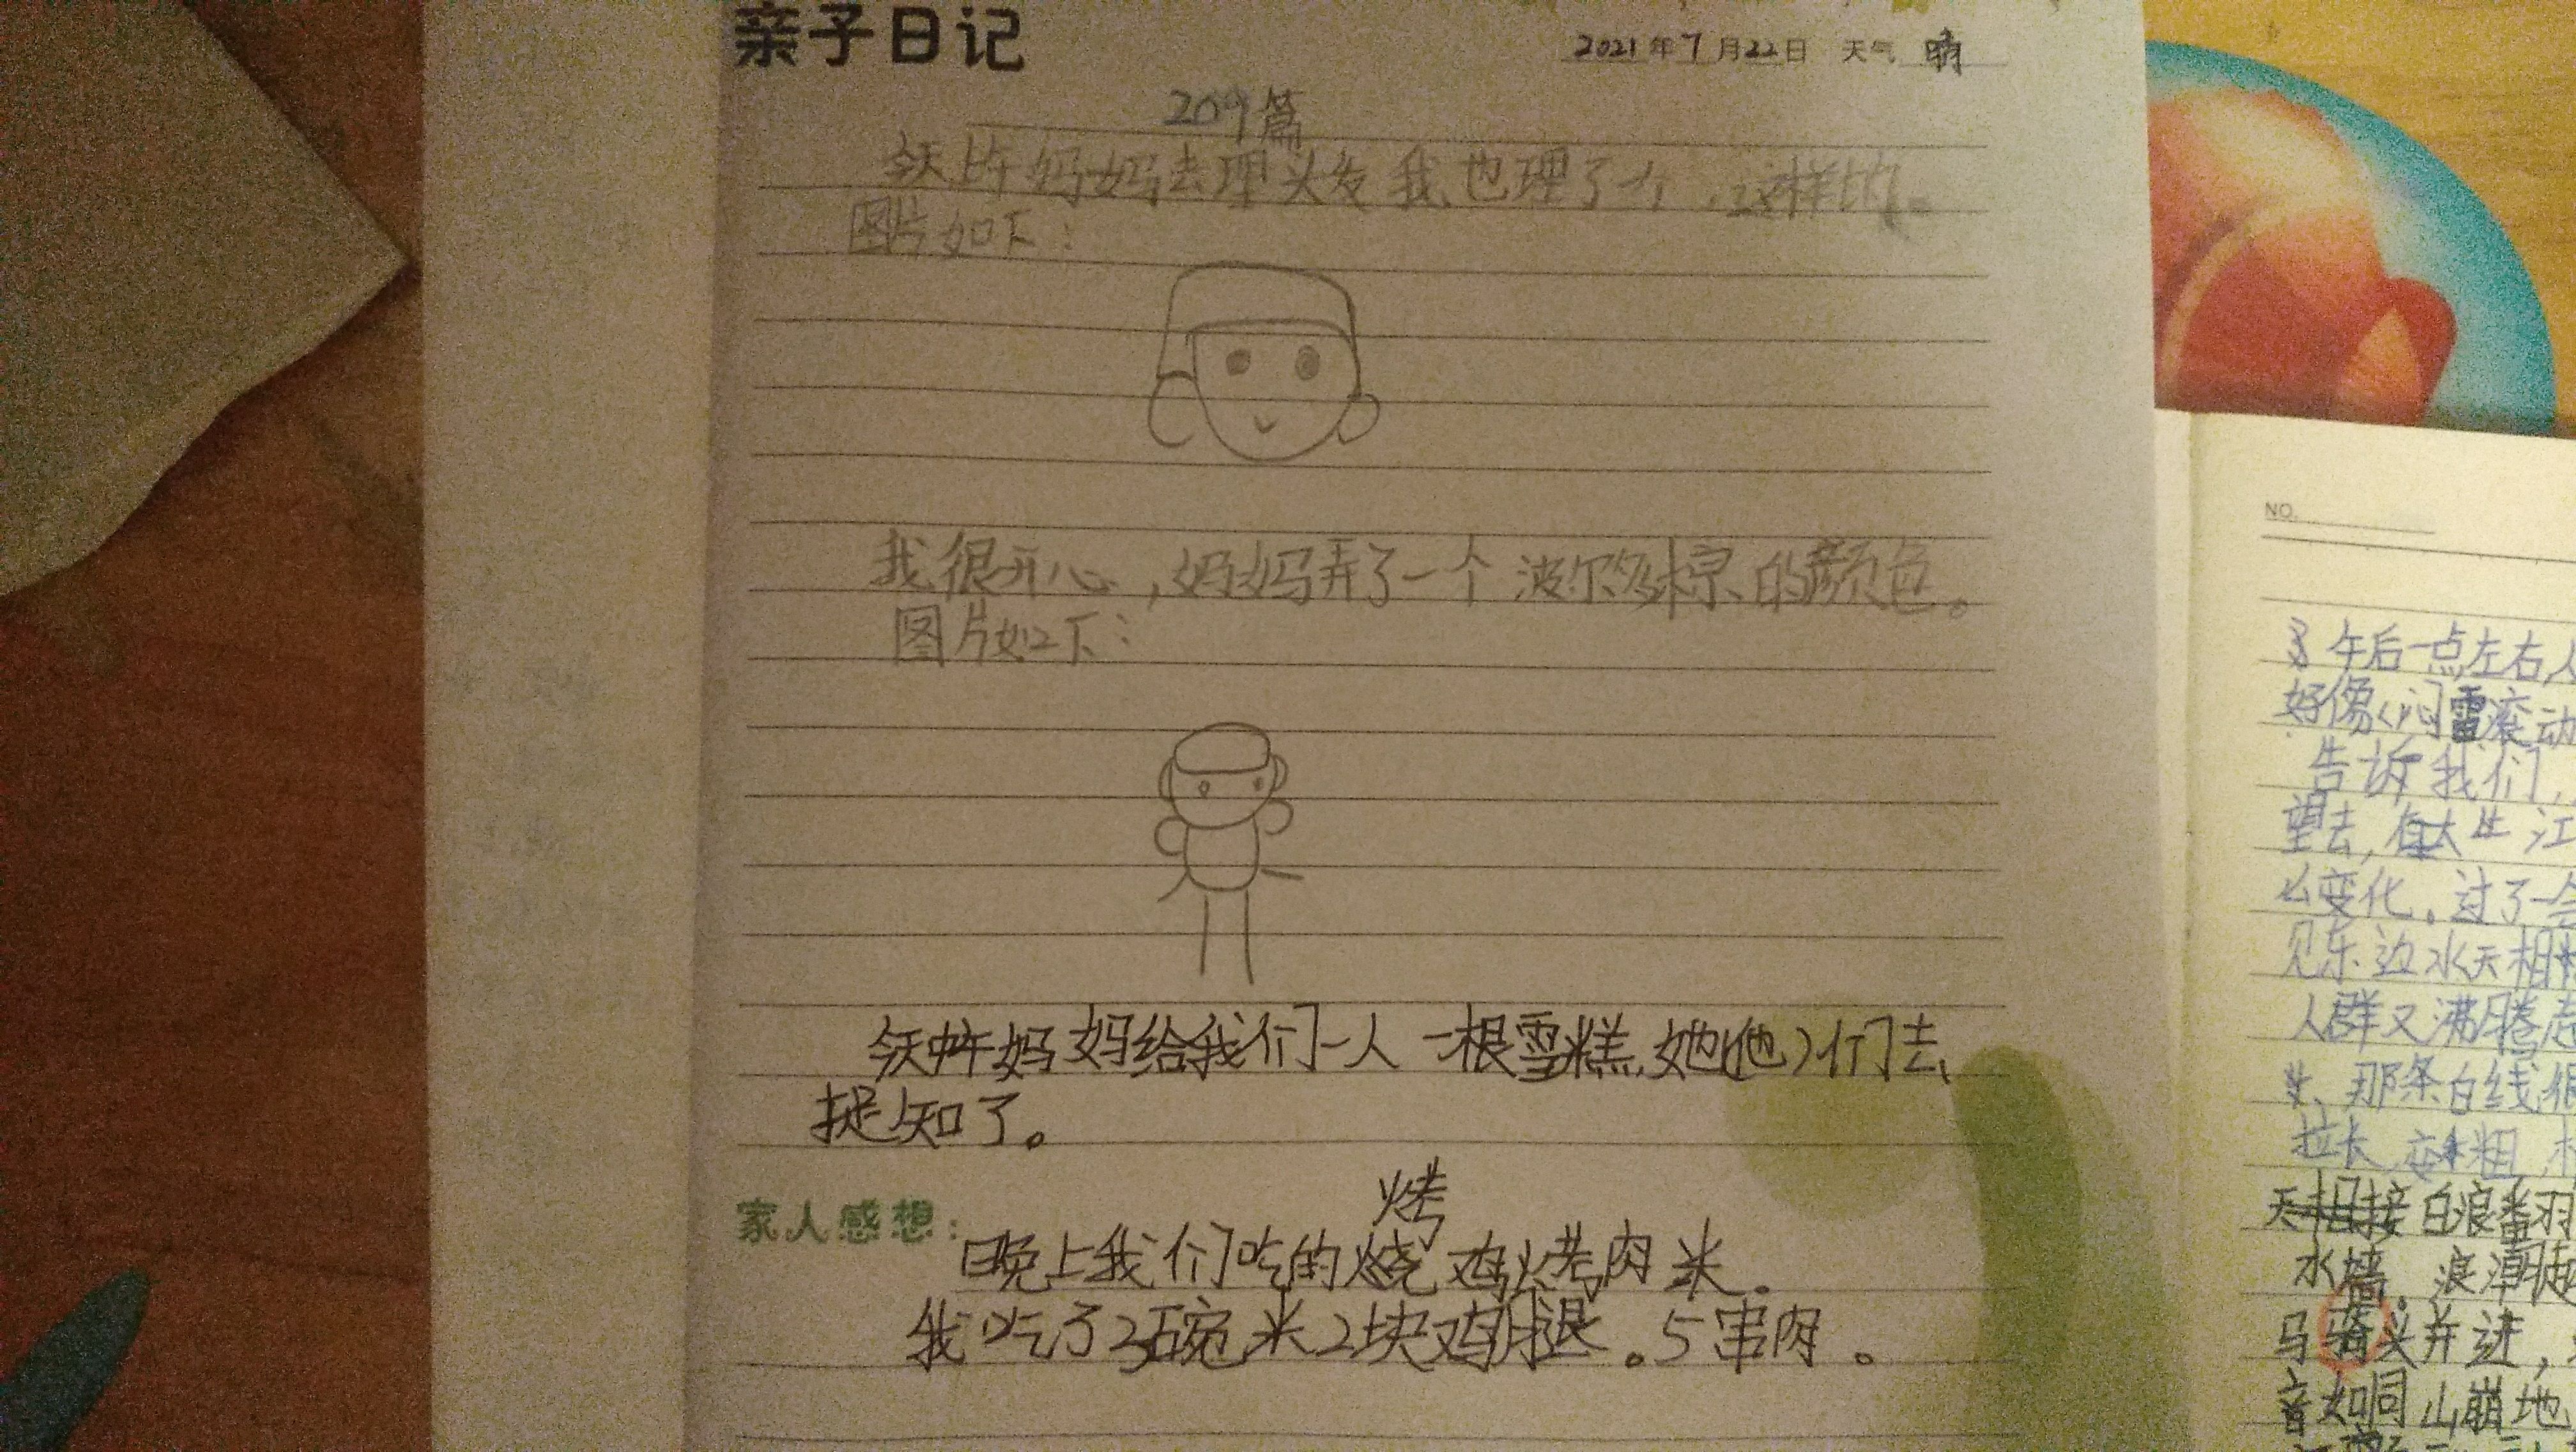 亲子日记
2021年7月22日 天气 晴
209篇
今天上午妈妈去理头发我也理了个,这样的。
图片如下:
我很开心,妈妈弄了一个波尔多棕的颜色。
图片如下:
今天中午妈妈给我们一人一根雪糕,她(他)们去
捉知了。
家人感想:
烤
晚上我们吃的烧鸡烤肉米。
我吃了2碗米2块鸡腿。5串肉。
NO.
午后一点左右,人
好像闷雷滚动
告诉我们,
望去,江
么变化。过了一会
见东边水天相
人群又沸腾起
那条白线很
拉长,变粗,
天相接白浪翻
水墙。浪潮
马骑头并进,
音如同山崩地